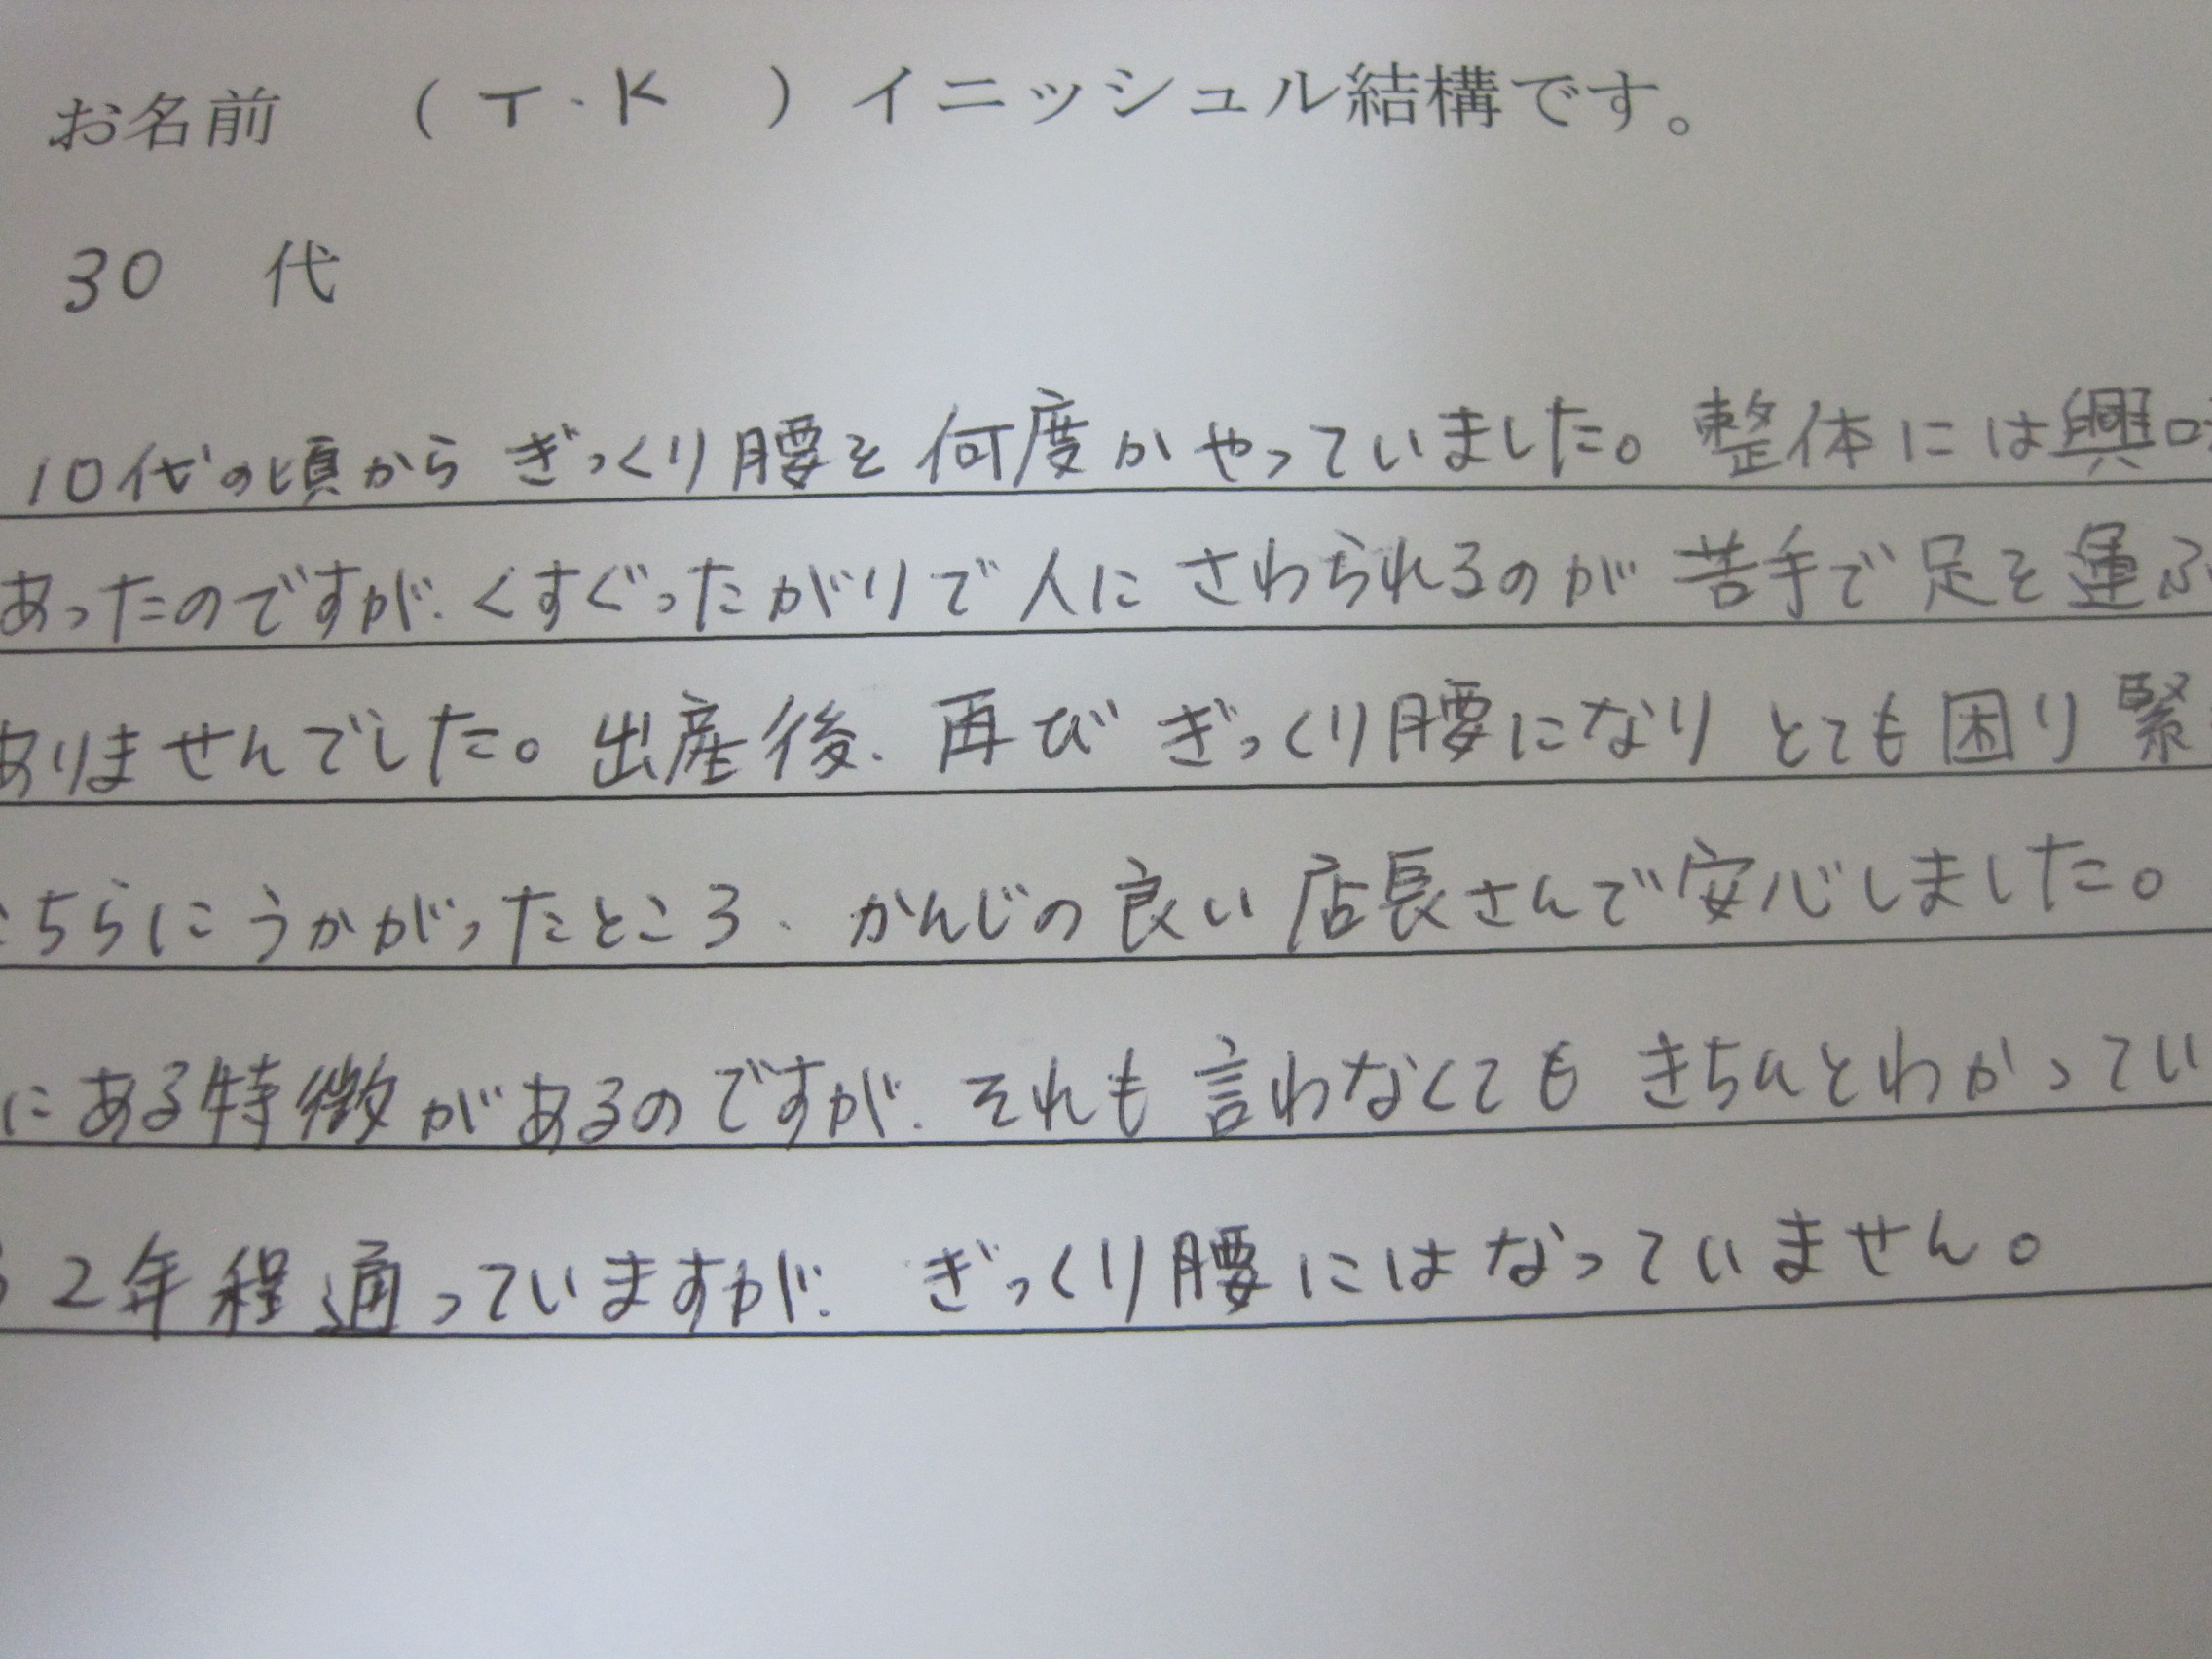 お名前 （T.K ）イニッシュル結構です。
30 代
10代の頃から ぎっくり腰を 何度かやっていました。整体には興味
あったのですが、くすぐったがりで人に さわられるのが 苦手で 足を運ぶ
ありませんでした。出産後、再び ぎっくり腰になり とても困り 緊
こちらにうかがったところ、かんじの良い 店長さんで安心しました。
にある特徴があるのですが、それも 言わなくても きちんとわかってい
2年程通っていますが、ぎっくり腰にはなっていません。